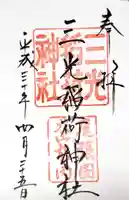 奉拝
三光稲荷神社
平成三十年四月二十五日
三光
稲荷
神社